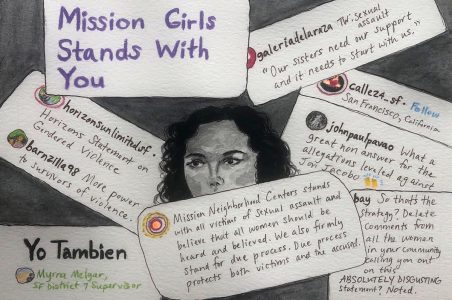 Mission Girls
Stands With
You
galeriadelaraza TW: sexual
assault
"Our sisters need our support
and it needs to start with us."
calle24_sf. Follow
San Francisco, California
horizonsunlimitedsf.
Horizons Statement on
Gendered Violence
barnzilla98 More power
to survivors of violence.
johnpaulpavao What a
great non answer for the
allegations leveled against
Jon Jacobo
Mission Neighborhood Centers stands
with all victims of sexual assault and
believe that all women should be
heard and believed. We also firmly
stand for due process. Due process
protects both victims and the accused.
bay So that's the
strategy? Delete
comments from
all the women
in your community
calling you out
on this
ABSOLUTELY DISGUSTING
statement? Noted.
Yo Tambien
Myrna Melgar,
SF District 7 Supervisor